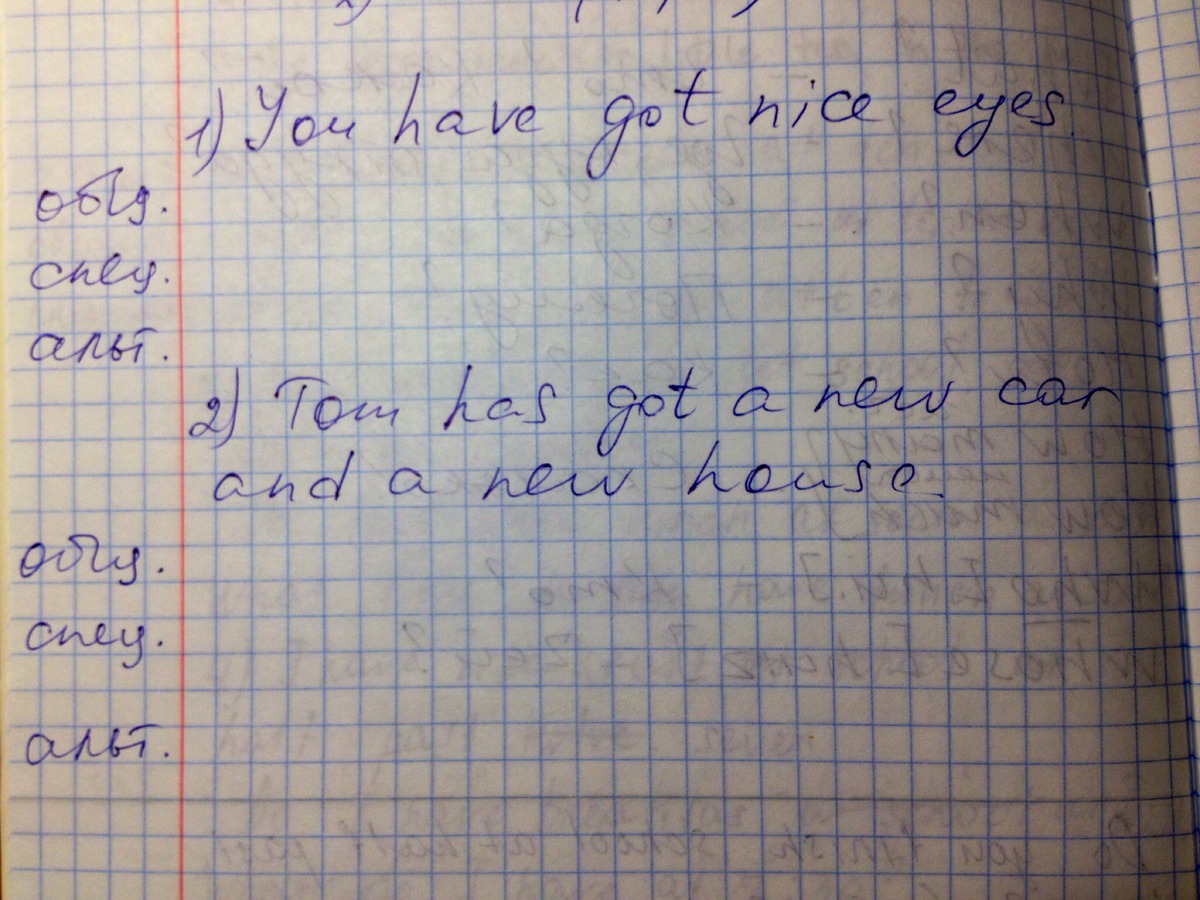 1) You have got nice eyes.
общ.
спец.
альт.
2) Tom has got a new car
and a new house.
общ.
спец.
альт.